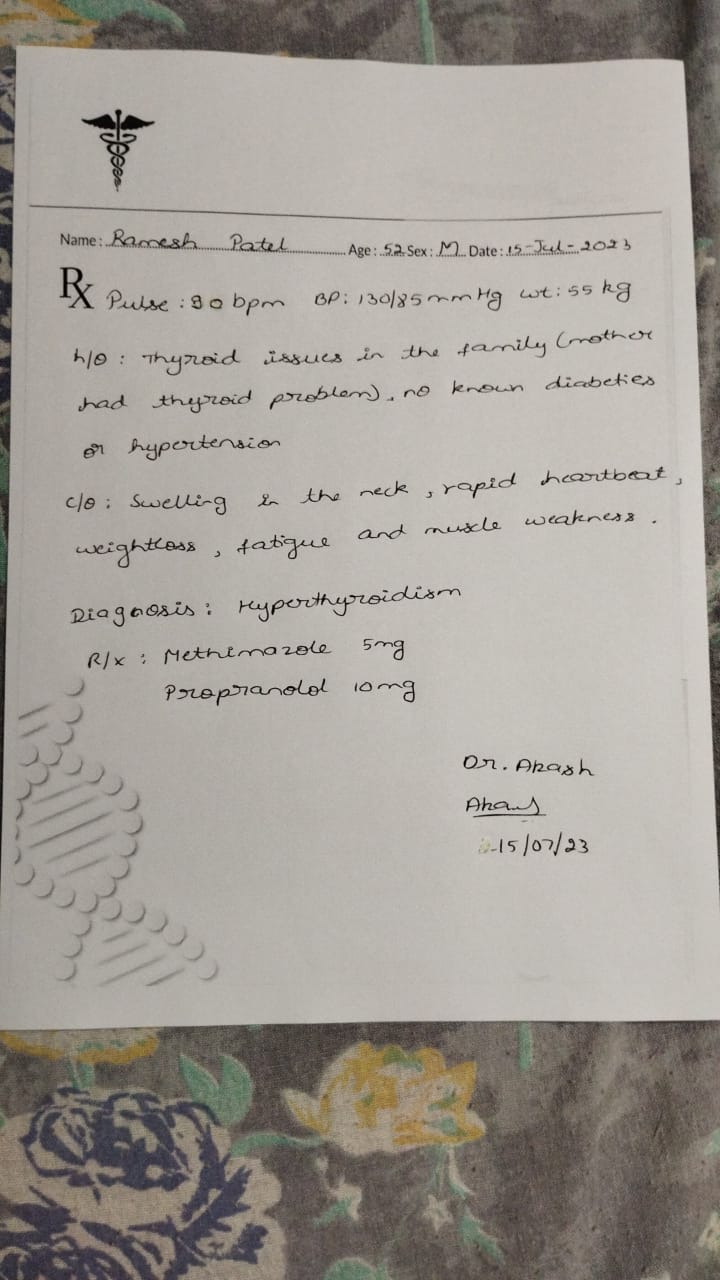 Name: Ramesh Patel Age: 52 Sex: M Date: 15-Jul-2023
Rx Pulse: 90 bpm BP: 130/85 mmHg wt: 55 kg
h/o : Thyroid issues in the family (mother
had thyroid problem), no known diabeties
or hypertension
c/o : Swelling in the neck, rapid heartbeat,
weightloss, fatigue and muscle weakness.
Diagnosis: Hyperthyroidism
R/x : Methimazole 5mg
Propranolol 10mg
Dr. Akash
Akash
15/07/23